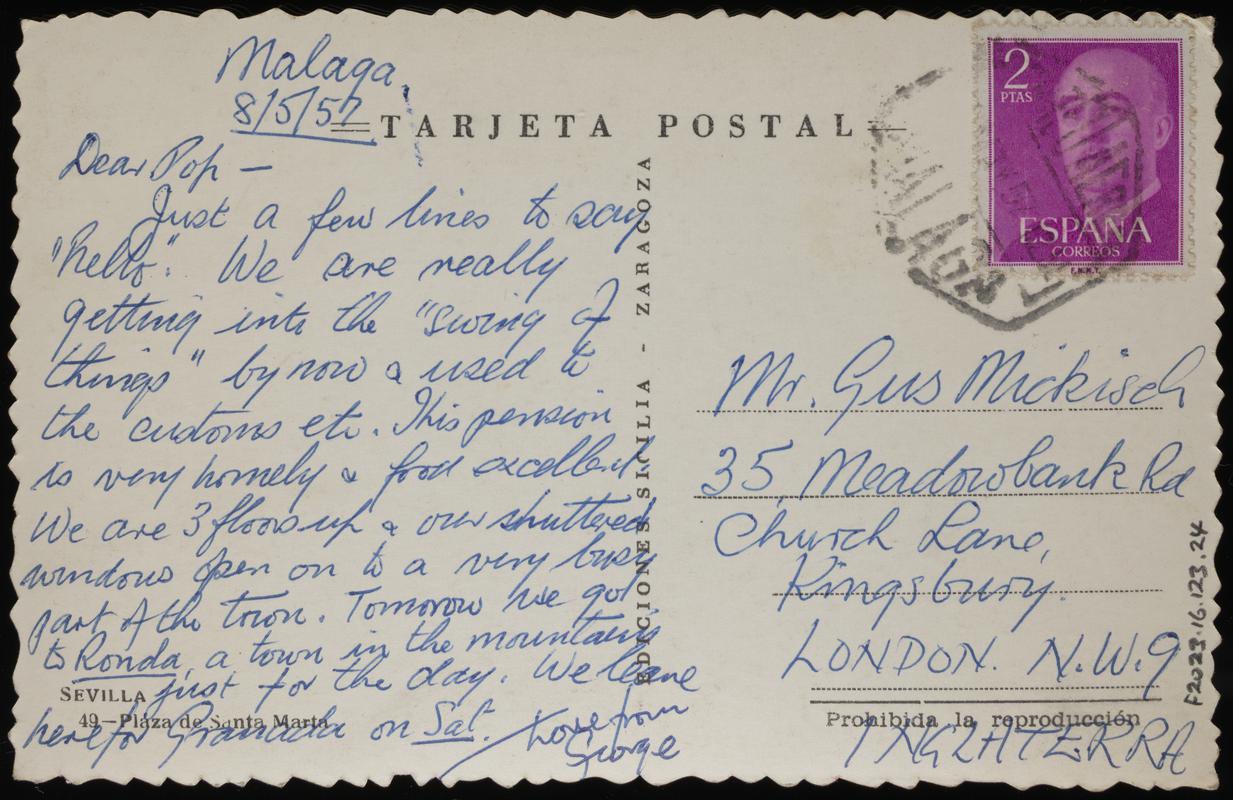 Malaga
8/5/57
TARJETA POSTAL
Dear Pop —
Just a few lines to say
"hello". We are really
getting into the "swing of
things" by now & used to
the customs etc. This pension
is very homely & food excellent
We are 3 floors up & our shuttered
windows open on to a very busy
part of the town. Tomorow we go
to Ronda, a town in the mountains
just for the day. We leave
here for Granada on Sat.
Love from
George
SEVILLA
49—Plaza de Santa Marta
EDICIONES SICILIA - ZARAGOZA
2
PTAS
ESPAÑA
CORREOS
F.N.M.T.
MALAGA
Mr. Gus Mickisch
35, Meadowbank Rd
Church Lane,
Kingsbury.
LONDON. N.W.9
Prohibida la reproducción
INGLATERRA
F2023.16.123.24